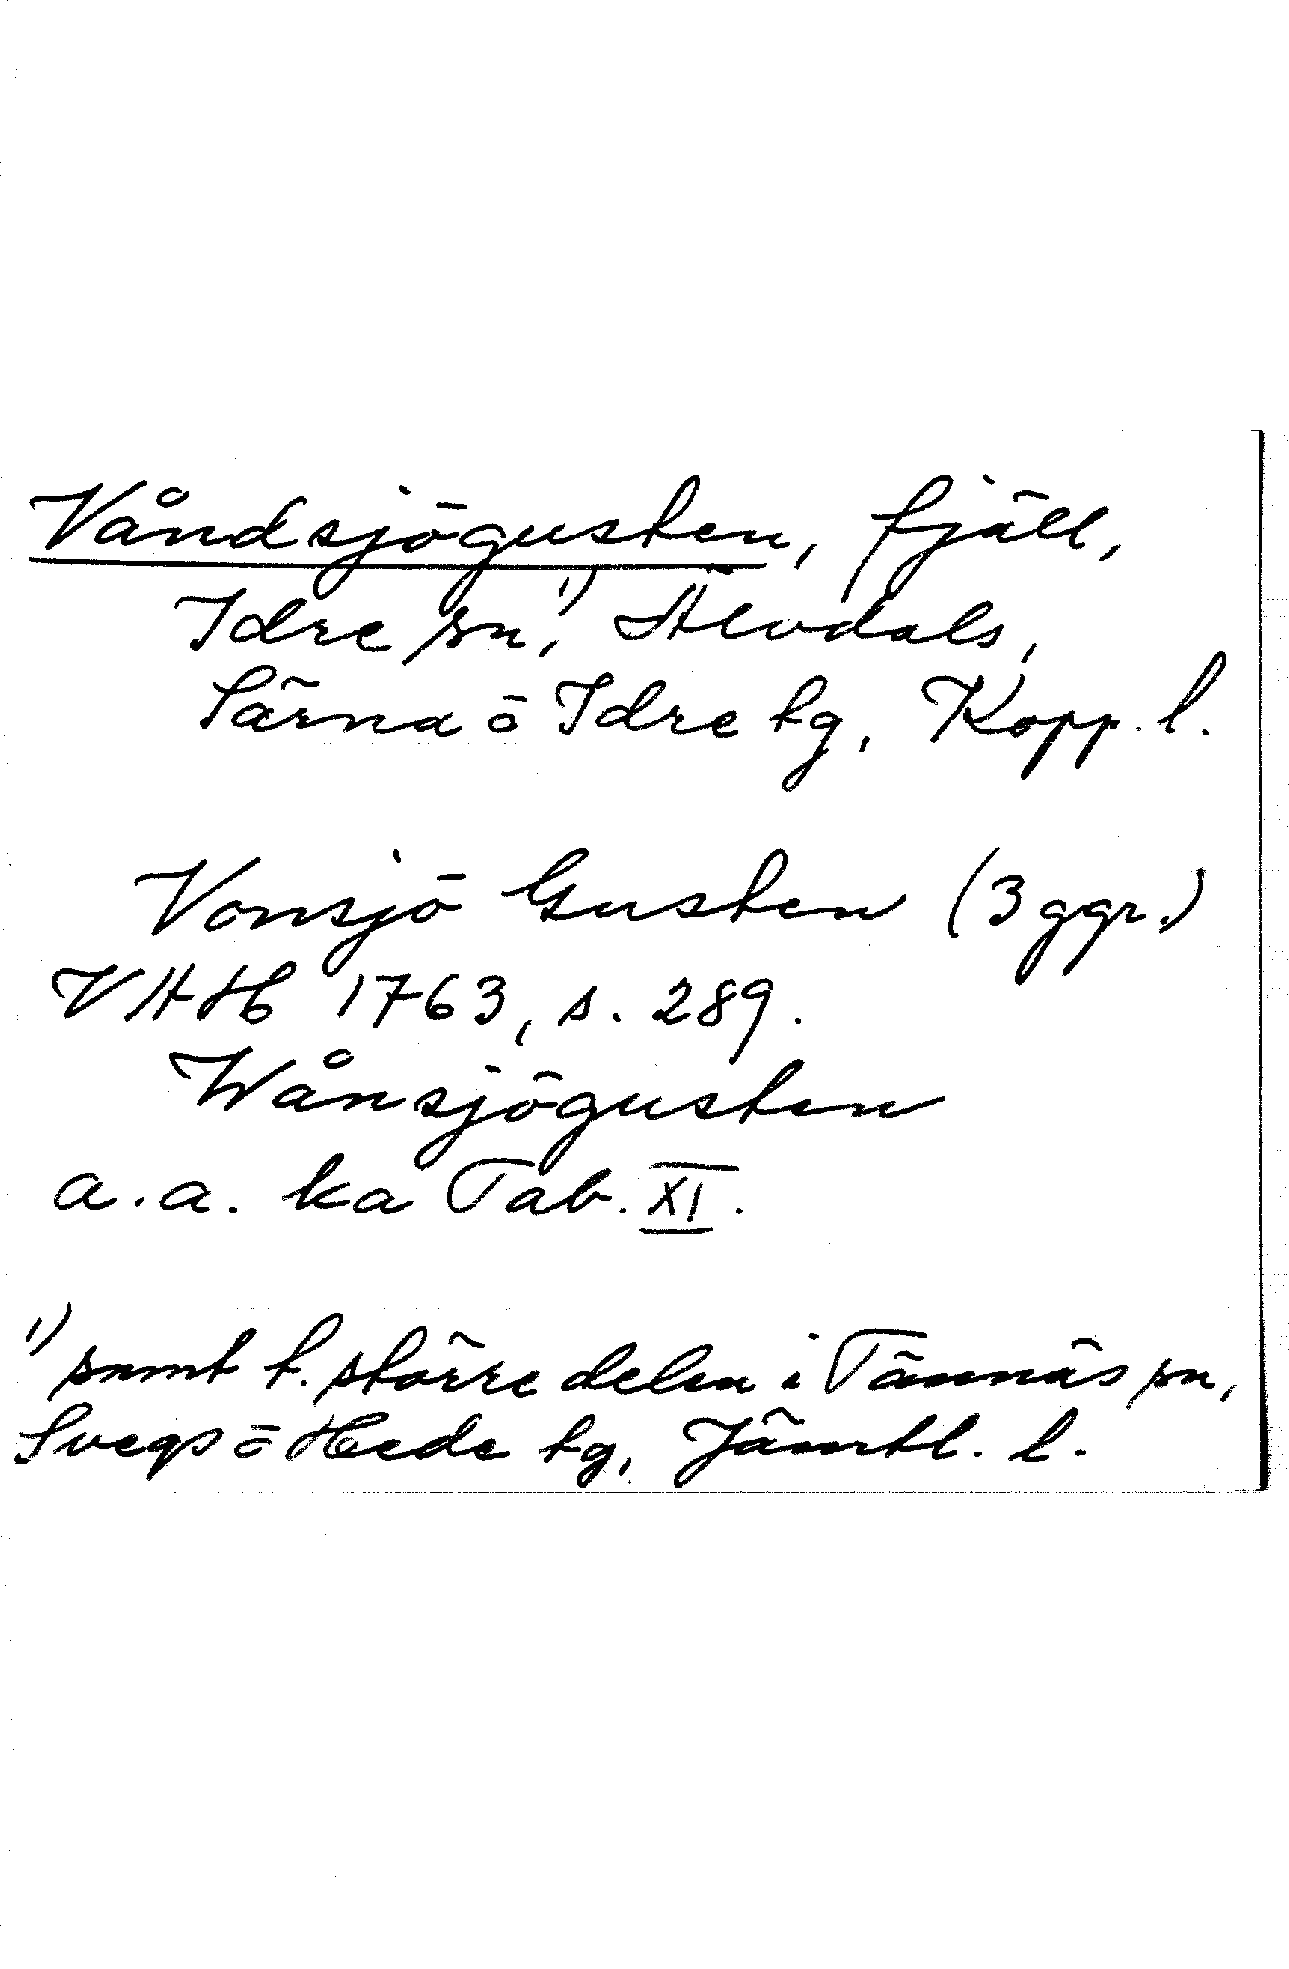 Våndsjögusten, fjäll,
Idre sn,¹⁾ Älvdals,
Särna ö Idre tg, Kopp. l.
Vonsjö Gusten (3 ggr.)
VHAH 1763, s. 289.
Wånsjögusten
a.a. ka Tab. XI.
¹⁾ samt t. större delen i Tännäs sn,
Svegs ö Hede tg, Jämtl. l.